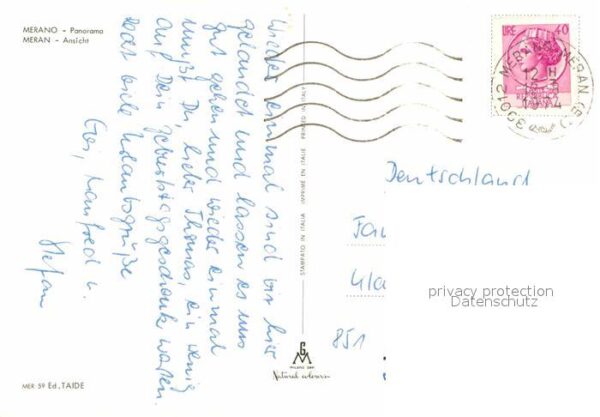 MERANO - Panorama
MERAN - Ansicht
Wieder einmal sind wir hier
gelandet und lassen es uns
gut gehen und wieder einmal
mußt Du, lieber Thomas, ein wenig
auf Dein Geburtstagsgeschenk warten.
viele Urlaubsgrüße
Manfred u.
Stefan
MER 59 Ed. TAIDE
STAMPATO IN ITALIA IMPRIMÉ EN ITALIE PRINTED IN ITALY
G
M
Natural colours
LIRE 40
39012 MERANO MERAN (BZ)
Deutschland
Fa
Kla
851
privacy protection
Datenschutz